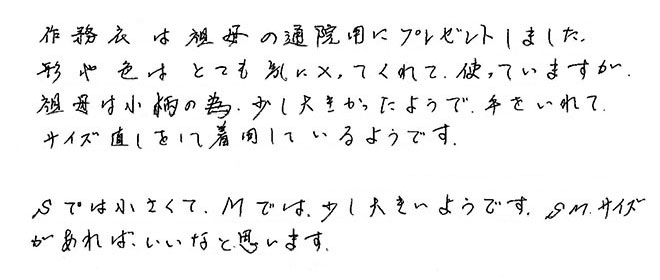 作務衣は祖母の通院用にプレゼントしました.
形や色はとても気に入ってくれて.使っていますが.
祖母は小柄の為.少し大きかったようで.手をいれて.
サイズ直しをして着用しているようです.
Sでは小さくて.Mでは.少し大きいようです.SM.サイズ
があれば.いいなと思います.